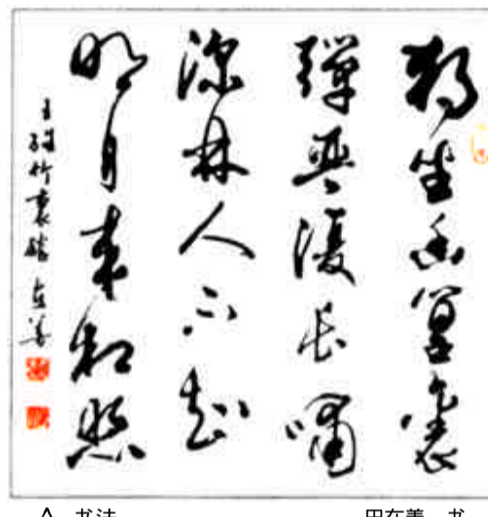 独坐幽篁裏
弹琴復长啸
深林人不知
明月来相照
王维竹裏馆 在善
△ 书法 田在善 书